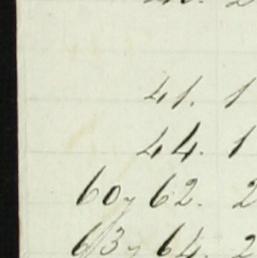 41. 1
44. 1
60 y 62. 2
63 y 64. 2